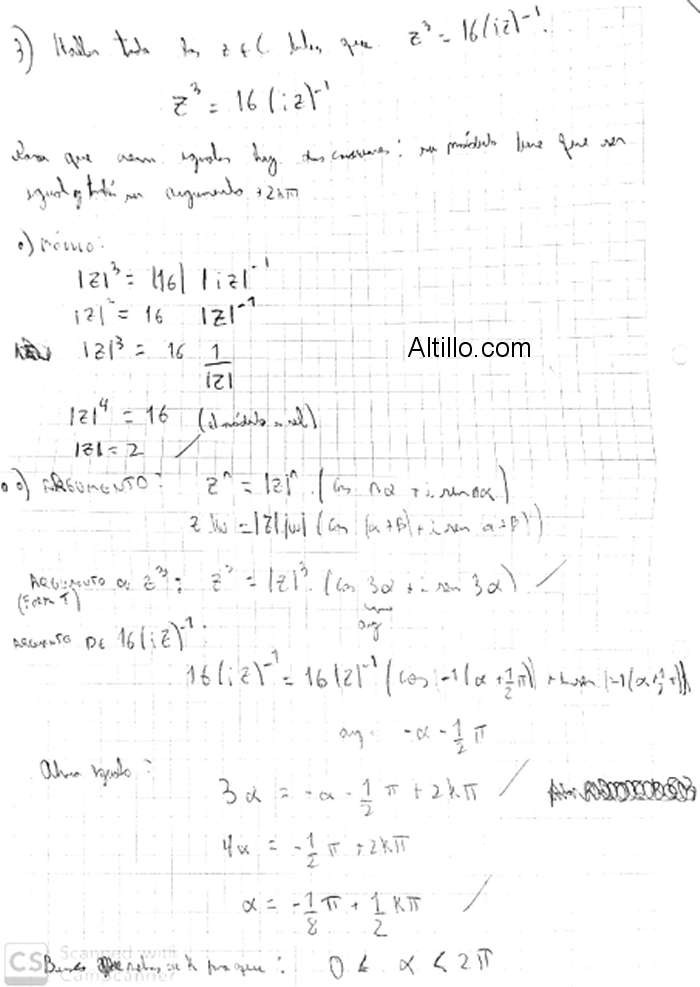 3) Hallar todos los z ∈ ℂ tales que z³ = 16(iz)⁻¹.
z³ = 16(iz)⁻¹
Para que sean iguales hay dos : su módulo tiene que ser
igual y su argumento +2kπ
•)
|z|³ = |16| |iz|⁻¹
|z|³ = 16 |z|⁻¹
|z|³ = 16 1/|z|
Altillo.com
|z|⁴ = 16 (el módulo es real)
|z| = 2
••) ARGUMENTO: zⁿ = |z|ⁿ. (cos nα + i sen nα)
z.w = |z||w|(cos (α+β) + i sen α+β)
ARGUMENTO DE z³: z³ = |z|³. (cos 3α + i sen 3α)
arg
ARGUMENTO DE 16(iz)⁻¹:
16(iz)⁻¹ = 16|z|⁻¹ (cos(-1(α + 1/2 π)) + i sen (-1(α + 1/2 π)))
arg = -α - 1/2 π
Ahora igualo:
3α = -α - 1/2 π + 2kπ
4α = -1/2 π + 2kπ
α = -1/8 π + 1/2 kπ
que: 0 ≤ α < 2π
CS Scanned with
CamScanner